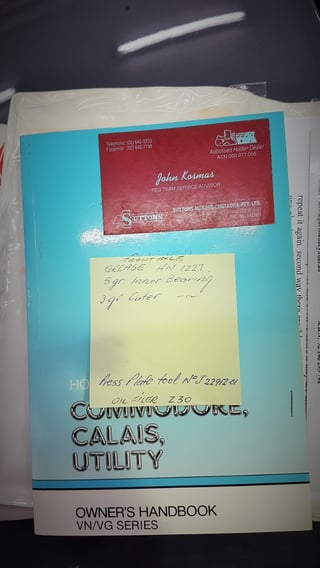 Telephone: (02) 642 0233
Facsimile: (02) 642-7798
Authorised Holden Dealer
John Kosmas
RED TEAM SERVICE ADVISOR
SUTTONS
SUTTONS MOTORS CHULLORA PTY. LTD.
FRONT AXLE
GREASE HN 1227
5gr. Inner Bearing
3gr Outer -"-
Press Plate tool No J 22912-01
OIL FILER Z30
HO
COMMODORE,
CALAIS,
UTILITY
OWNER'S HANDBOOK
VN/VG SERIES
repeat it again, second way